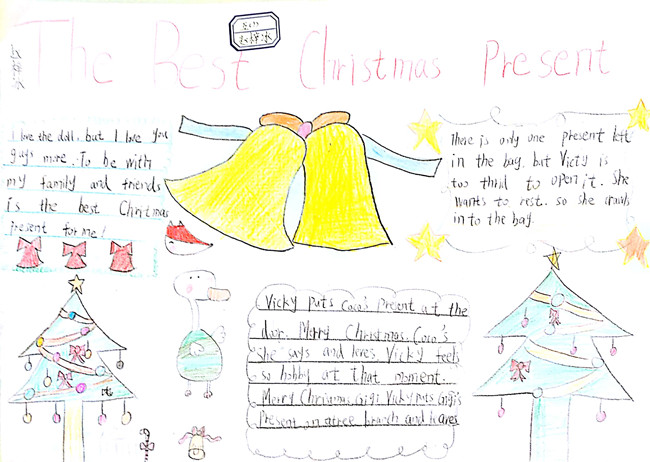 The Best Christmas Present
I love the doll, but I love you
guys more. To be with
my family and friends
is the best Christmas
present for me!
There is only one present left
in the bag, but Vicky is
too thrid to open it. She
wants to rest. so she
in to the bag.
Vicky puts Coco's present at the
door. Merry Christmas. Coco's
she says and leves. Vicky feels
so hobby at that moment.
Merry Christmas, Gigi. Vicky puts Gigi's
Present on a tree branch and leaves